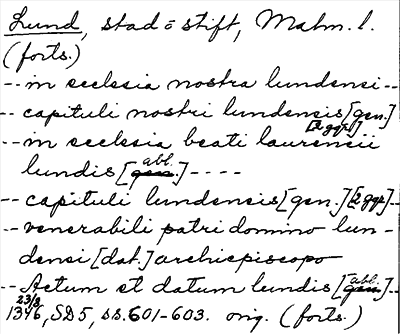 Lund, stad o stift, Malm. l.
(forts.)
-- in ecclesia nostra lundensi --
-- capituli nostri lundensis [gen.]
[2 ggr]
-- in ecclesia beati laurencii
abl.
lundis [gen.] ----
-- capituli lundensis [gen.] [2 ggr] --
-- venerabili patri domino lun-
densi [dat.] archiepiscopo
abl.
-- Actum et datum lundis [gen.]
23/3
1346, SD5, ss. 601-603. orig. (forts.)